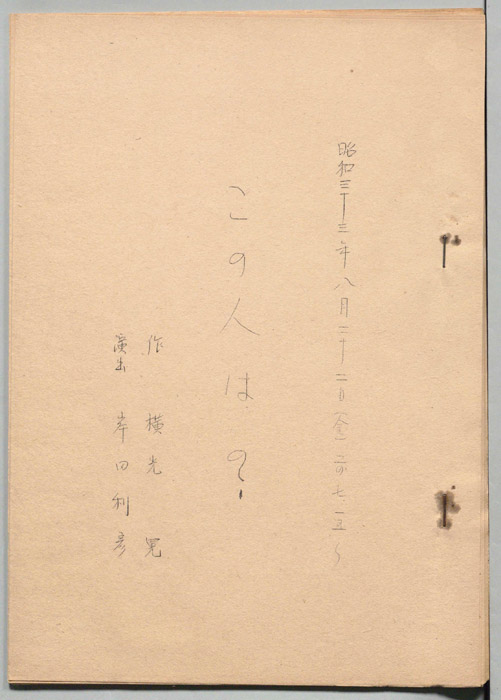 昭和三十三年八月二十二日(金)后七一五～
この人は?
作 横光 晃
演出 岸田利彦